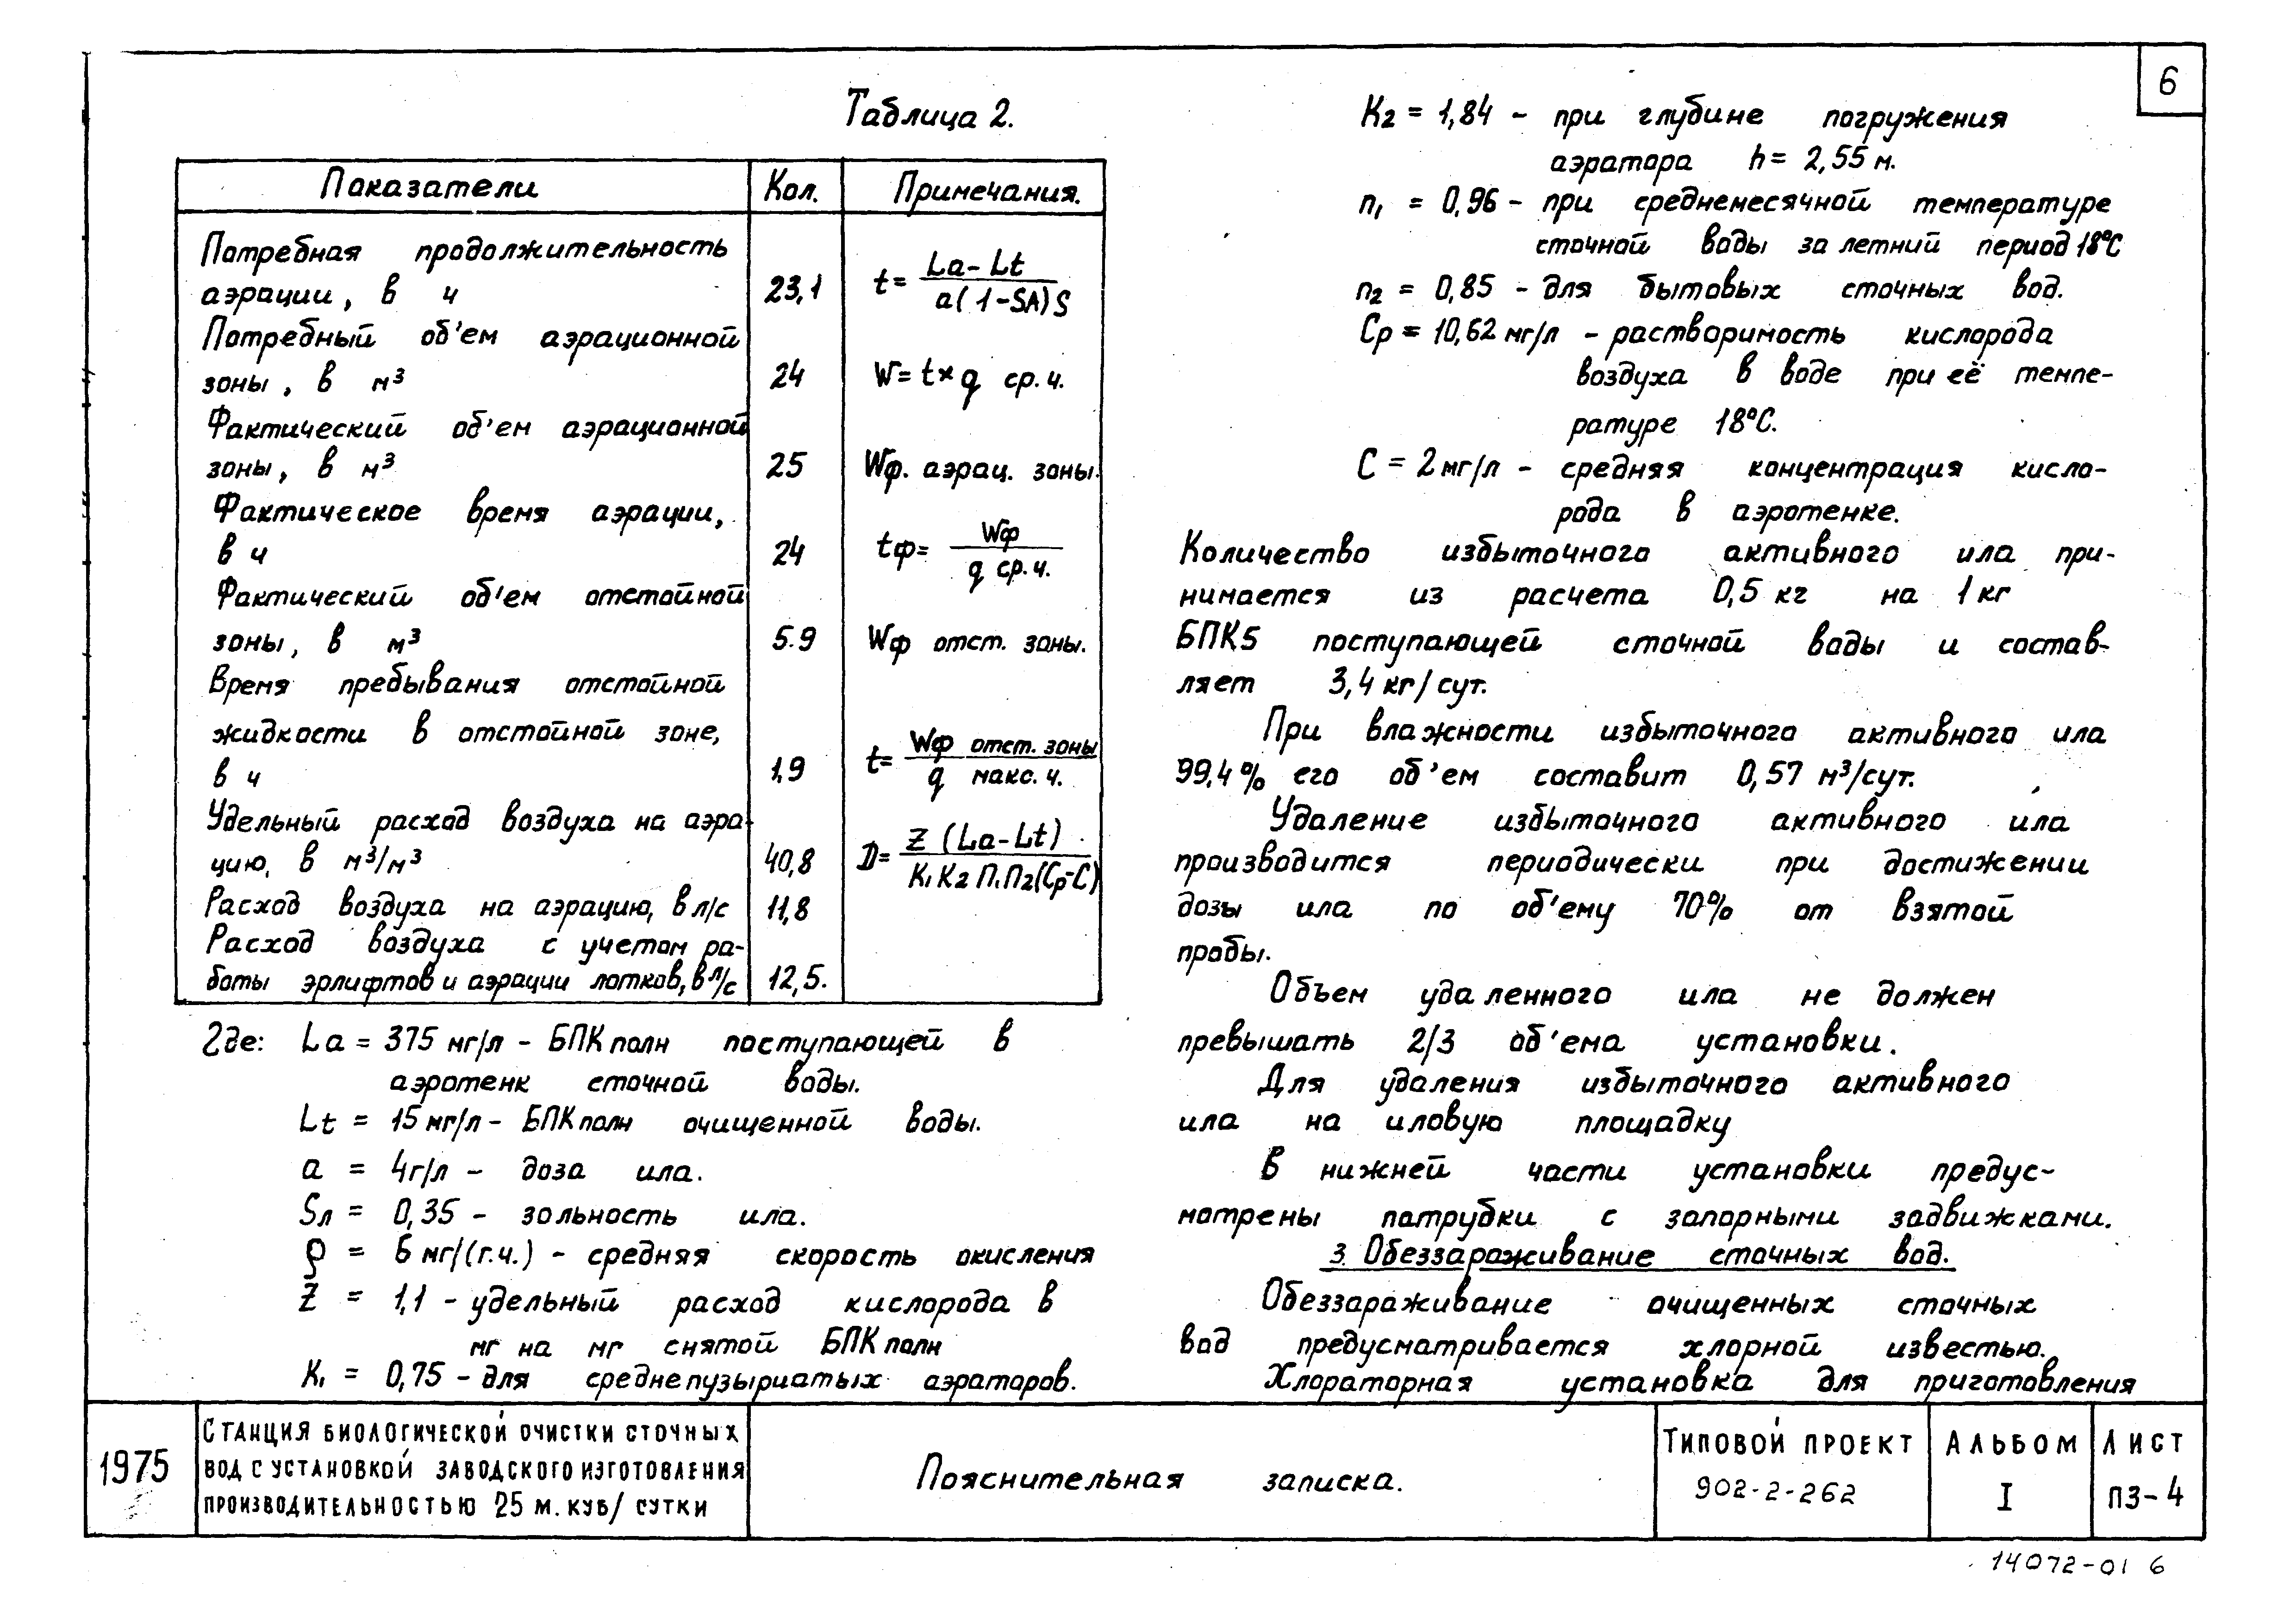 6
Таблица 2.
Показатели Кол. Примечания.
Потребная продолжительность
аэрации, в ч 23,1 t= La-Lt / a(1-SA)S
Потребный об'ем аэрационной
зоны, в м³ 24 W=t×q ср.ч.
Фактический об'ем аэрационной
зоны, в м³ 25 Wф. аэрац. зоны.
Фактическое время аэрации,
в ч 24 tф= Wф / q ср.ч.
Фактический об'ем отстойной
зоны, в м³ 5.9 Wф отст. зоны.
Время пребывания отстойной
жидкости в отстойной зоне,
в ч 1,9 t= Wф отст. зоны / q макс. ч.
Удельный расход воздуха на аэра-
цию, в м³/м³ 40,8 D= Z (La-Lt) / K₁ K₂ П₁П₂(Ср-С)
Расход воздуха на аэрацию, в л/с 11,8
Расход воздуха с учетом ра-
боты эрлифтов и аэрации лотков, в л/с 12,5.
где: La = 375 мг/л - БПК полн поступающей в
аэротенк сточной воды.
Lt = 15 мг/л - БПК полн очищенной воды.
a = 4г/л - доза ила.
Sл = 0,35 - зольность ила.
ρ = 6 мг/(г.ч.) - средняя скорость окисления
Z = 1,1 - удельный расход кислорода в
мг на мг снятой БПК полн
K₁ = 0,75 - для среднепузырчатых аэраторов.
K₂ = 1,84 - при глубине погружения
аэратора h = 2,55 м.
n₁ = 0,96 - при среднемесячной температуре
сточной воды за летний период 18°С
n₂ = 0,85 - для бытовых сточных вод.
Ср = 10,62 мг/л - растворимость кислорода
воздуха в воде при её темпе-
ратуре 18°С.
С = 2 мг/л - средняя концентрация кисло-
рода в аэротенке.
Количество избыточного активного ила при-
нимается из расчета 0,5 кг на 1 кг
БПК5 поступающей сточной воды и состав-
ляет 3,4 кг/сут.
При влажности избыточного активного ила
99,4% его об'ем составит 0,57 м³/сут.
Удаление избыточного активного ила
производится периодически при достижении
дозы ила по об'ему 70% от взятой
пробы.
Объем удаленного ила не должен
превышать 2/3 об'ема установки.
Для удаления избыточного активного
ила на иловую площадку
В нижней части установки предус-
мотрены патрубки с запорными задвижками.
3. Обеззараживание сточных вод.
Обеззараживание очищенных сточных
вод предусматривается хлорной известью.
Хлораторная установка для приготовления
1975
СТАНЦИЯ БИОЛОГИЧЕСКОЙ ОЧИСТКИ СТОЧНЫХ
ВОД С УСТАНОВКОЙ ЗАВОДСКОГО ИЗГОТОВЛЕНИЯ
ПРОИЗВОДИТЕЛЬНОСТЬЮ 25 М.КУБ/ СУТКИ
Пояснительная записка.
ТИПОВОЙ ПРОЕКТ
902-2-262
АЛЬБОМ
I
ЛИСТ
ПЗ-4
14072-01 6